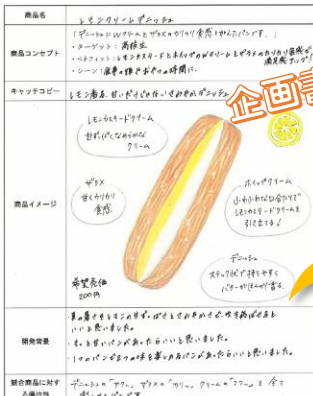 商品名
レモンクリームデニッシュ
商品コンセプト
「デニッシュにWクリームとザラメのカリカリ食感を楽しんだパンです。」
・ターゲット：高校生
・ベネフィット：レモンカスタードとホイップのWクリームとザラメのカリカリ食感で満足感アップ！
・シーン：食事の後やおやつの時間に。
キャッチコピー
レモン香る、甘いだけじゃないさわやかデニッシュ
企画書
商品イメージ
レモンカスタードクリーム
甘ずっぱくなめらかな
クリーム
ザラメ
甘くカリカリ
食感
ホイップクリーム
ふわふわな口当たりで
レモンカスタードクリームを
引き立てる
デニッシュ
スティック状で持ちやすく
バターがほんのり香る
希望売価
200円
開発背景
・夏の暑さをレモンの甘ずっぱさとさわやかさで、吹き飛ばせると
いいと思いました。
・もっと甘いパンがあったらいいと思いました。
・1つのパンで2つの味を楽しめるパンがあったらいいと思いました。
競合商品に対す
る優位性
デニッシュの「サク」、ザラメの「カリ」、クリームの「フワ」を全て